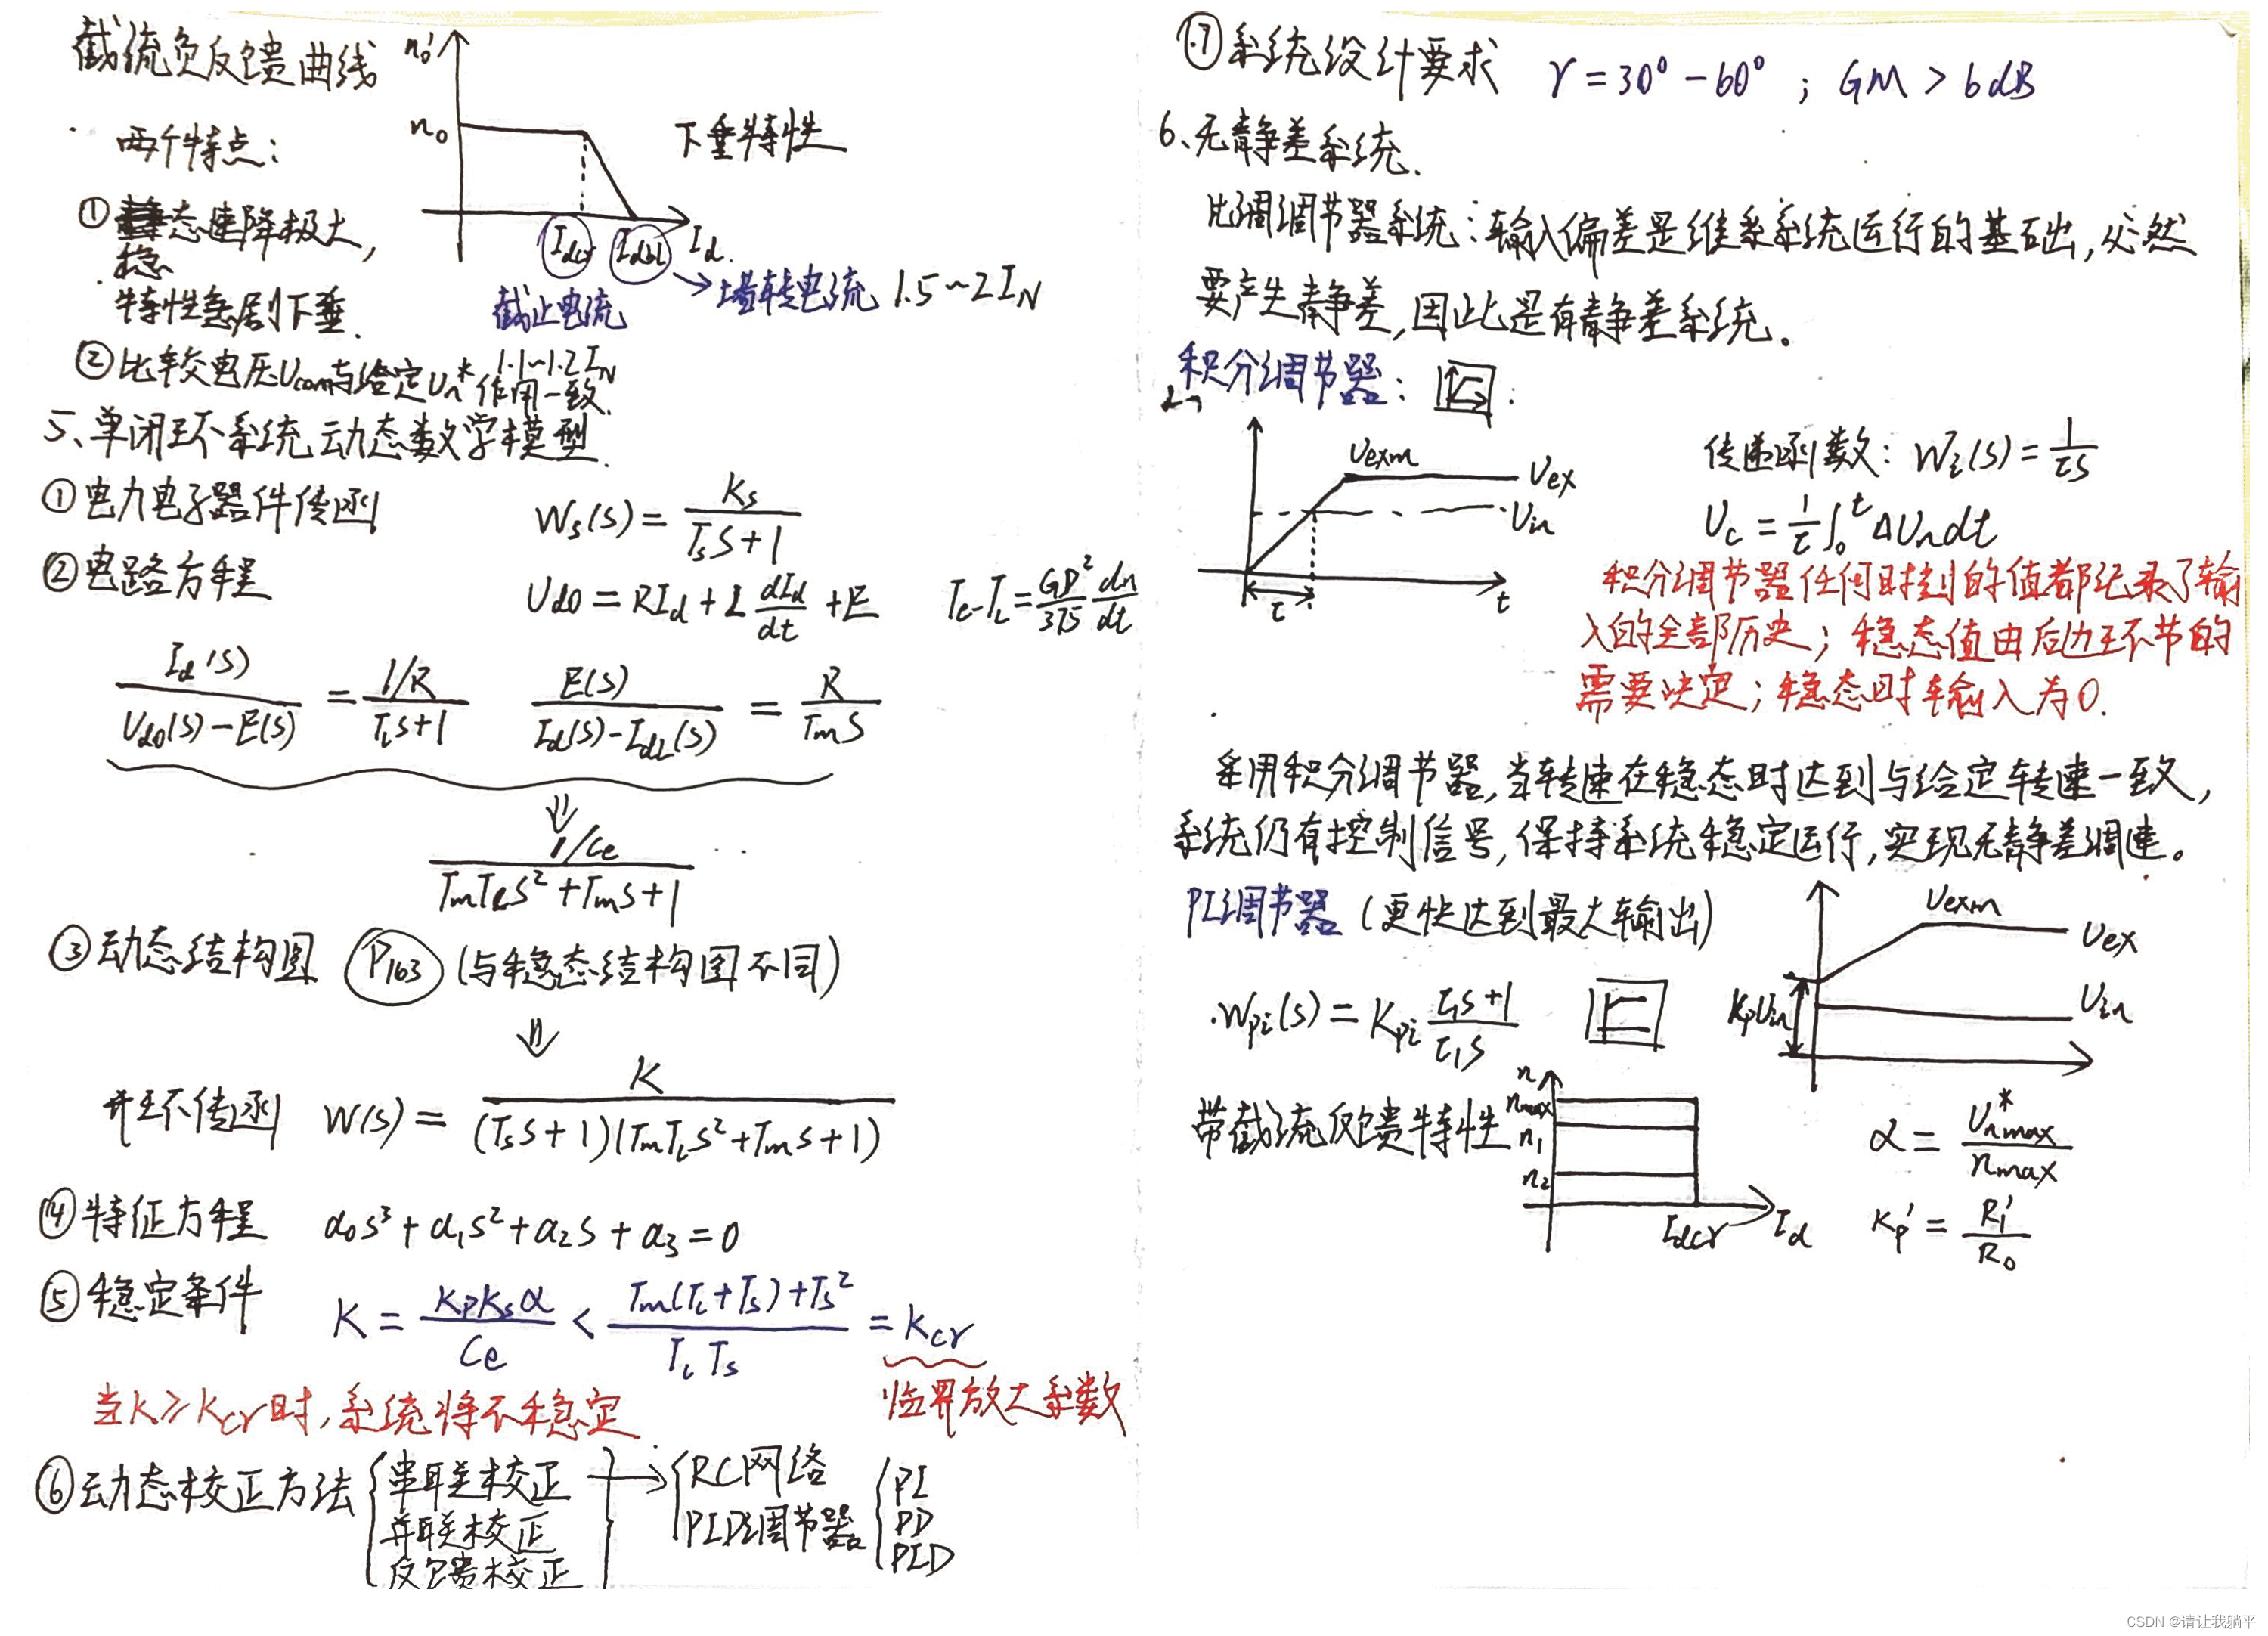 截流负反馈曲线
n₀'
n₀
下垂特性
两个特点：
①稳态速降极大，
特性急剧下垂.
Idcr Idbl Id.
截止电流 → 堵转电流 1.5~2IN
1.1~1.2IN
②比较电压Ucom与给定Un*作用一致.
5、单闭环系统动态数学模型.
①电力电子器件传函 Ws(s) = Ks/(Tss+1)
②电路方程 Ud0 = RId + L dId/dt + E Te-TL = GD²/375 dn/dt
Id(s)/(Ud0(s)-E(s)) = (1/R)/(Tls+1) E(s)/(Id(s)-IdL(s)) = R/(Tms)
⇓
(1/Ce)/(TmTls²+Tms+1)
③动态结构图 P163 (与稳态结构图不同)
⇓
开环传函 W(s) = K/((Tss+1)(TmTls²+Tms+1))
④特征方程 a₀s³+a₁s²+a₂s+a₃=0
⑤稳定条件 K = KpKsα/Ce < (Tm(Tl+Ts)+Ts²)/(TlTs) = Kcr
当K≥Kcr时，系统将不稳定 临界放大系数
⑥动态校正方法 { 串联校正 } → { RC网络
并联校正 PID调节器 { PI
反馈校正 PD
PID
⑦系统设计要求 γ=30°-60°；GM>6dB
6、无静差系统.
比调调节器系统：输入偏差是维系系统运行的基础，必然
要产生静差，因此是有静差系统。
积分调节器：
Uexm
Uex
Uin
τ t
传递函数：Wi(s) = 1/(τs)
Uc = 1/τ ∫₀ᵗ ΔUndt
积分调节器任何时刻的值都纪录了输
入的全部历史；稳态值由后边环节的
需要决定；稳态时输入为0.
采用积分调节器，当转速在稳态时达到与给定转速一致，
系统仍有控制信号，保持系统稳定运行，实现无静差调速。
PI调节器(更快达到最大输出)
Uexm
Uex
Uin
KpUin
Wpi(s) = Kpi (τ₁s+1)/(τ₁s)
带截流反馈特性
n
nmax
n₁
n₂
Idcr Id
α = U*nmax/nmax
Kp' = R₁'/R₀
CSDN @请让我躺平